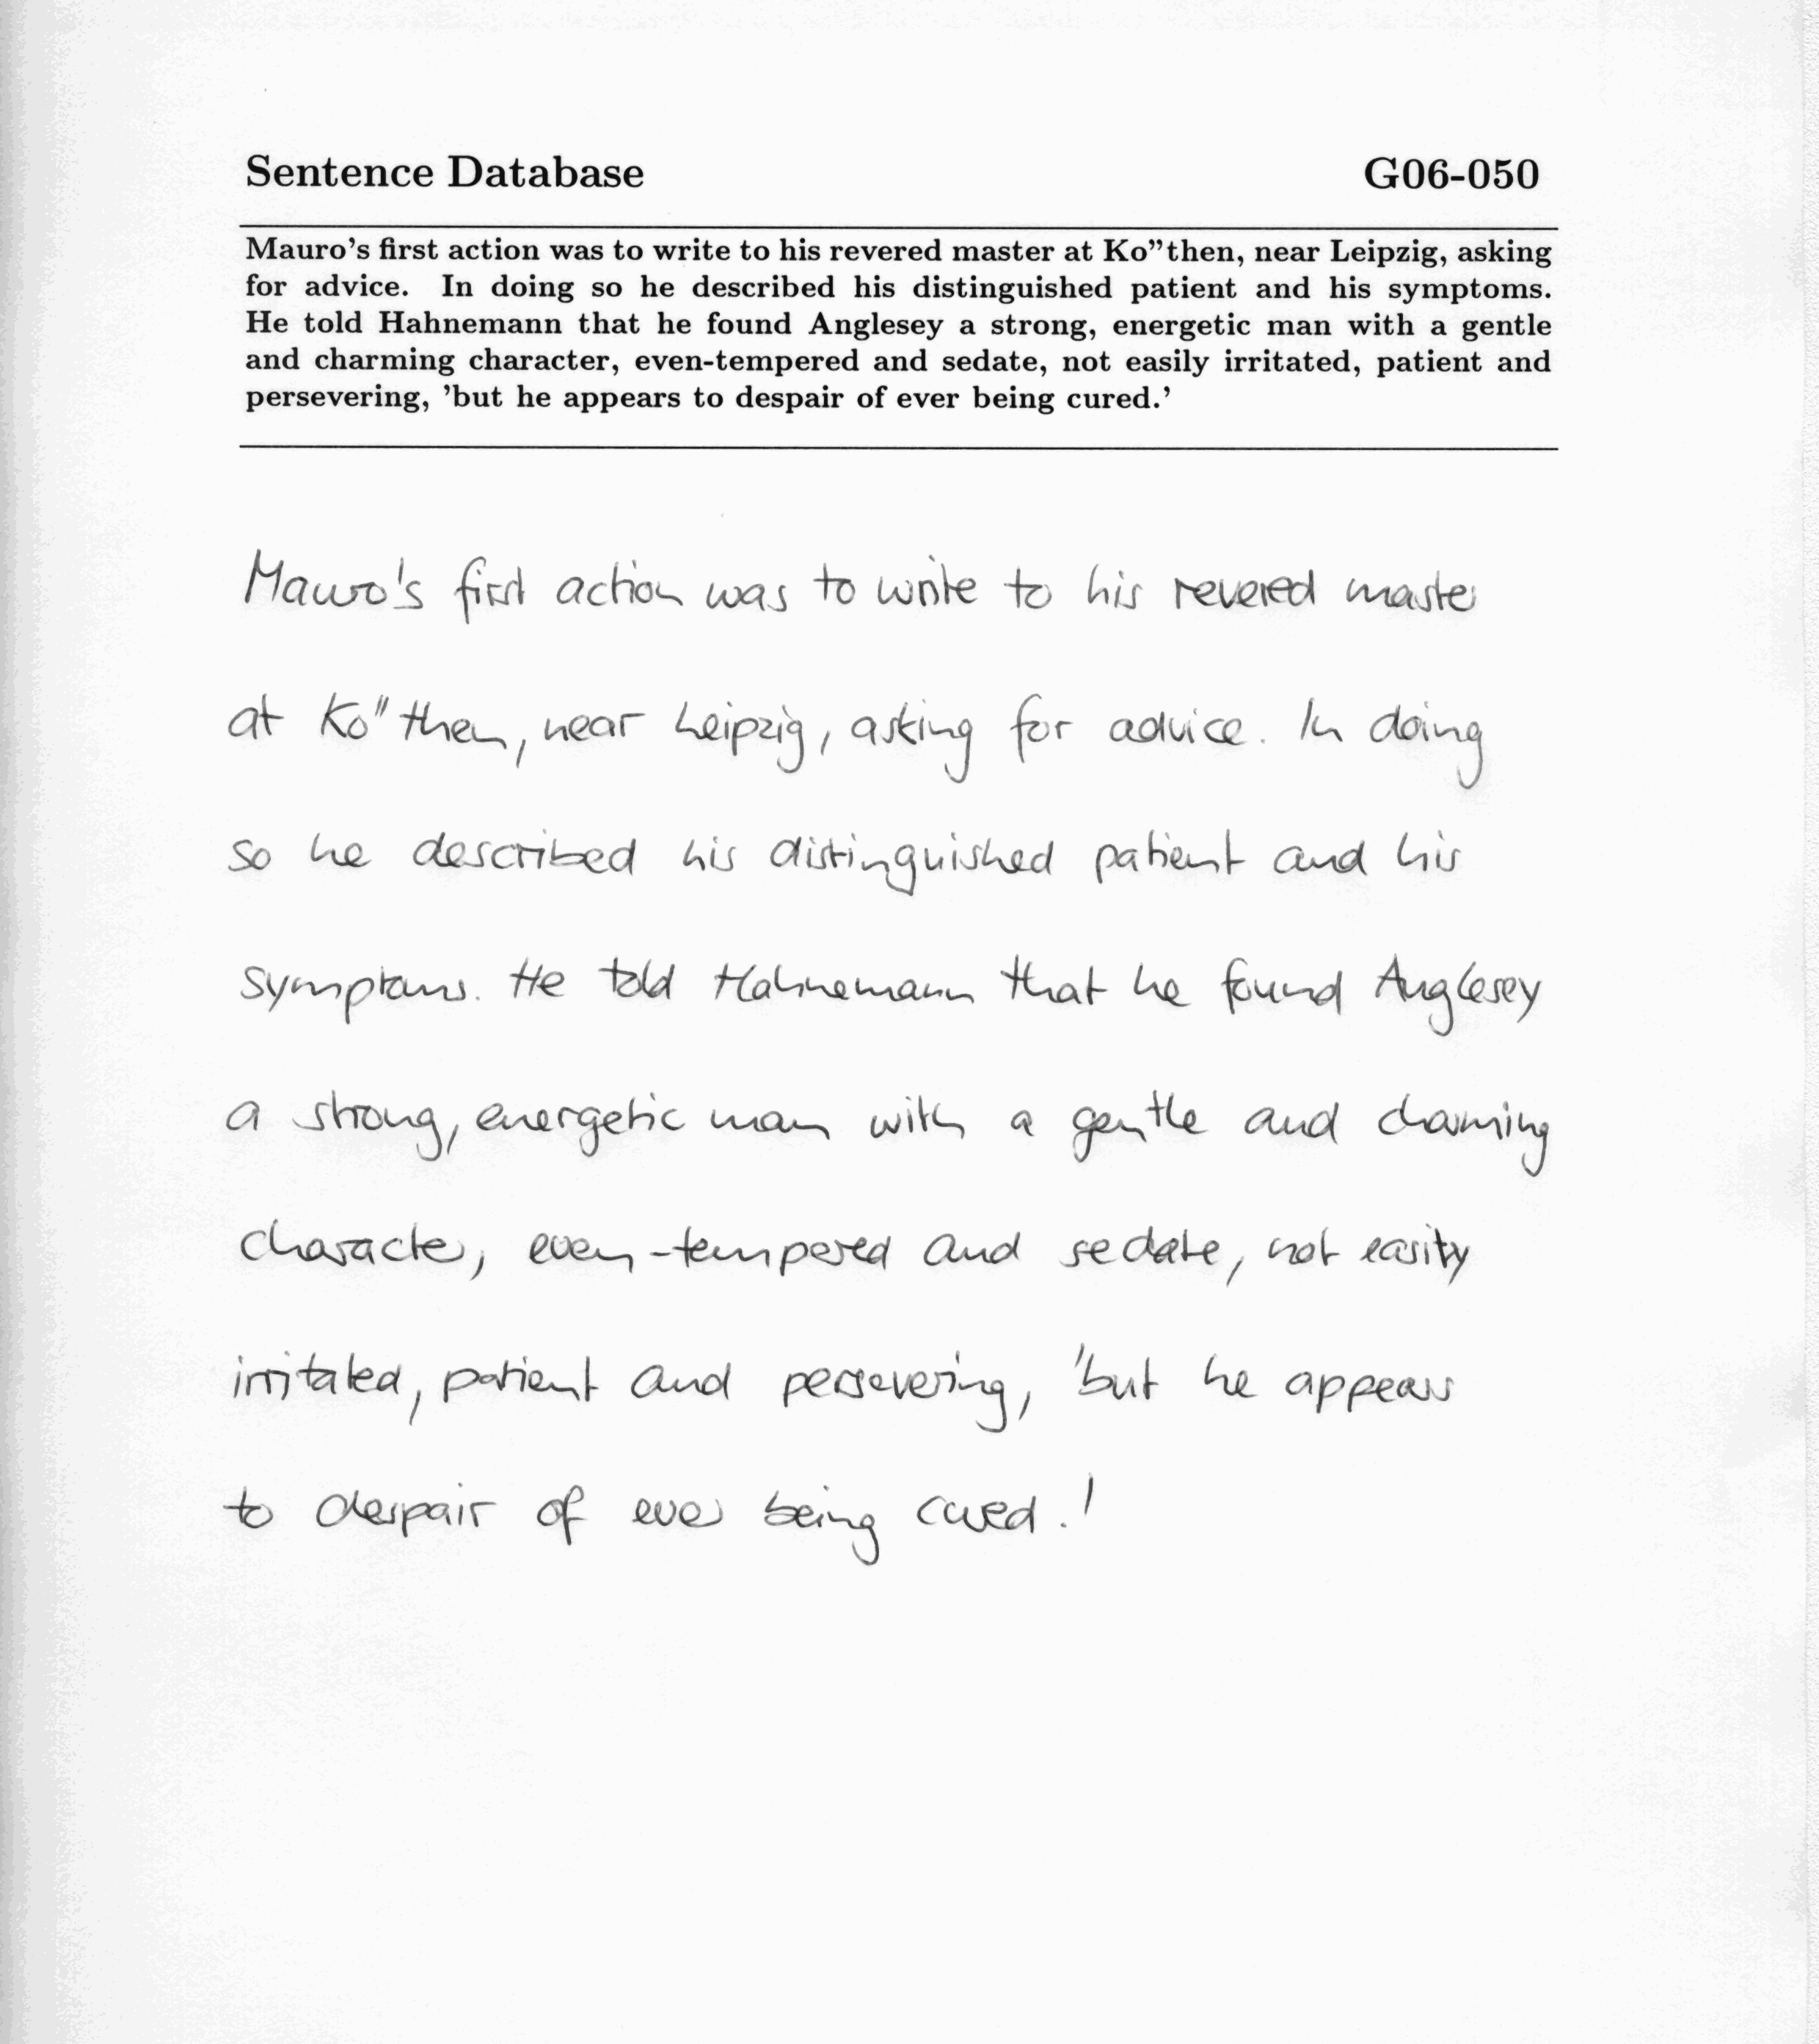 Sentence Database G06-050
Mauro's first action was to write to his revered master at Ko"then, near Leipzig, asking
for advice. In doing so he described his distinguished patient and his symptoms.
He told Hahnemann that he found Anglesey a strong, energetic man with a gentle
and charming character, even-tempered and sedate, not easily irritated, patient and
persevering, 'but he appears to despair of ever being cured.'
Mauro's first action was to write to his revered master
at Ko"then, near Leipzig, asking for advice. In doing
so he described his distinguished patient and his
symptoms. He told Hahnemann that he found Anglesey
a strong, energetic man with a gentle and charming
character, even-tempered and sedate, not easily
irritated, patient and persevering, 'but he appears
to despair of ever being cured.'